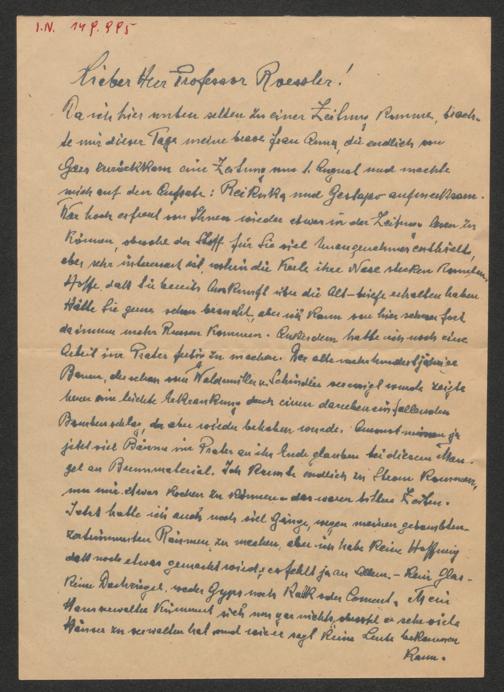 I.N. 149.995
Lieber Herr Professor Roessler!
Da ich hier unten selten zu einer Zeitung komme, brach-
te mir dieser Tage meine brave Frau Anna, die endlich von
zurückkam eine Zeitung vom 1. August und machte
mich auf den Aufsatz: und Gestapo aufmerksam.
War hoch erfreut von Ihnen wieder etwas in der Zeitung lesen zu
können, obwohl der Stoff für Sie viel Unangenehmes enthielt,
aber sehr interessant ist, wohin die Kerle ihre Nase stecken konnten.
Hoffe, daß Sie bereits Auskunft über die Alt-briefe erhalten haben
Hätte Sie gerne schon besucht, aber ich kann von hier schwer fort
da immer mehr Russen kommen. Außerdem hatte ich noch eine
Arbeit im Prater fertig zu machen. Der alte mehrhundertjährige
Baum, der schon von Waldmüller u. Schindler verewigt wurde zeigte
heuer eine leichte Erkrankung durch einen daneben einfallenden
Bombenschlag, der aber wieder behoben wurde. müssen ja
jetzt viel Bäume im Prater an ihr Ende glauben bei diesem Man-
gel an Brennmaterial. Ich konnte endlich zu Strom kommen,
um mir etwas kochen zu können - das waren bittere Zeiten.
Jetzt hatte ich auch noch viel Gänge, wegen meinen gebombten-
zertrümmerten Räumen zu machen, aber ich habe keine Hoffnung
daß noch etwas gemacht wird, es fehlt ja an allem. - Kein Glas -
keine Dachziegel, weder Gyps noch Kalk oder Cement. Mein
Hausverwalter kümmert sich um gar nichts, obwohl er sehr viele
Häuser zu verwalten hat und wie er sagt keine Leute bekommen
kann.